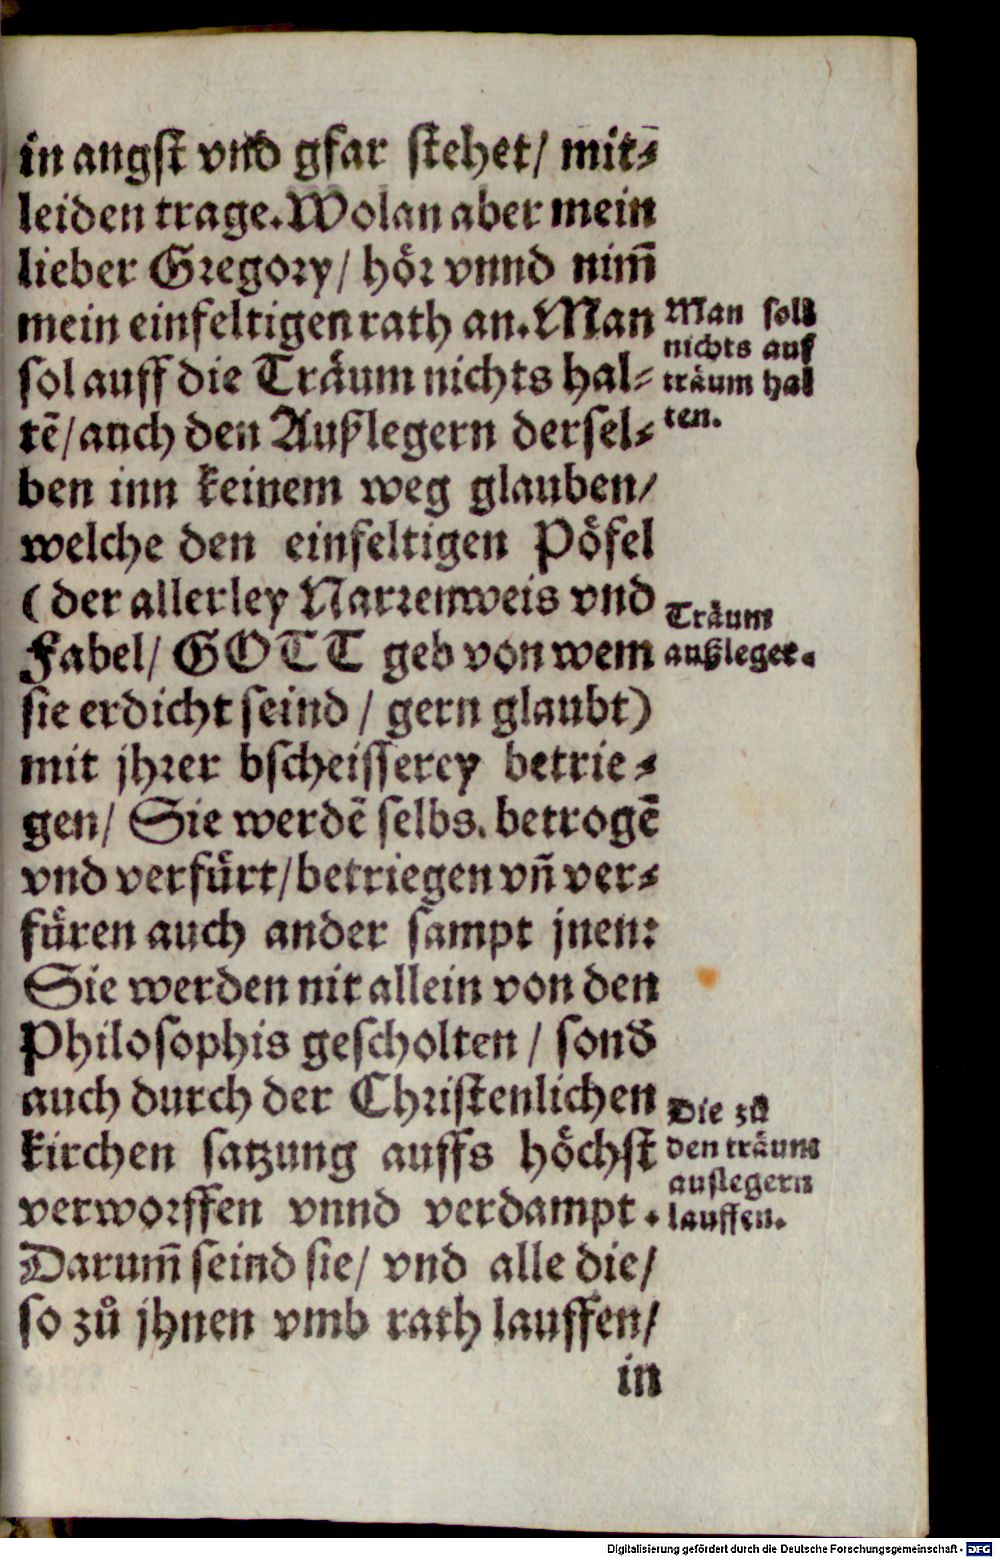 in angst vnd gfar stehet/ mit⸗
leiden trage. Wolan aber mein
lieber Gregory/ hoͤr vnnd nim̃
mein einfeltigen rath an. Man
sol auff die Traͤum nichts hal⸗
tẽ/ auch den Außlegern dersel⸗
ben inn keinem weg glauben/
welche den einfeltigen Poͤfel
(der allerley Narrenweis vnd
Fabel/ GOTT geb von wem
sie erdicht seind / gern glaubt)
mit jhrer bscheisserey betrie⸗
gen/ Sie werdẽ selbs. betrogẽ
vnd verfuͤrt/ betriegen vñ ver⸗
fuͤren auch ander sampt jnen:
Sie werden nit allein von den
Philosophis gescholten / sond̃
auch durch der Christenlichen
kirchen satzung auffs hoͤchst
verworffen vnnd verdampt.
Darum̃ seind sie/ vnd alle die/
so zuͦ jhnen vmb rath lauffen/
in
Man soll
nichts auf
traͤum hal
ten.
Traͤum
außleger.
Die zuͦ
den traͤum
auslegern
lauffen.
Digitalisierung gefördert durch die Deutsche Forschungsgemeinschaft - DFG